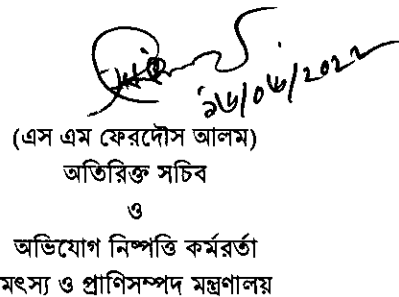 ১৬/০৬/২০২২
(এস এম ফেরদৌস আলম)
অতিরিক্ত সচিব
ও
অভিযোগ নিষ্পত্তি কর্মরর্তা
মৎস্য ও প্রাণিসম্পদ মন্ত্রণালয়